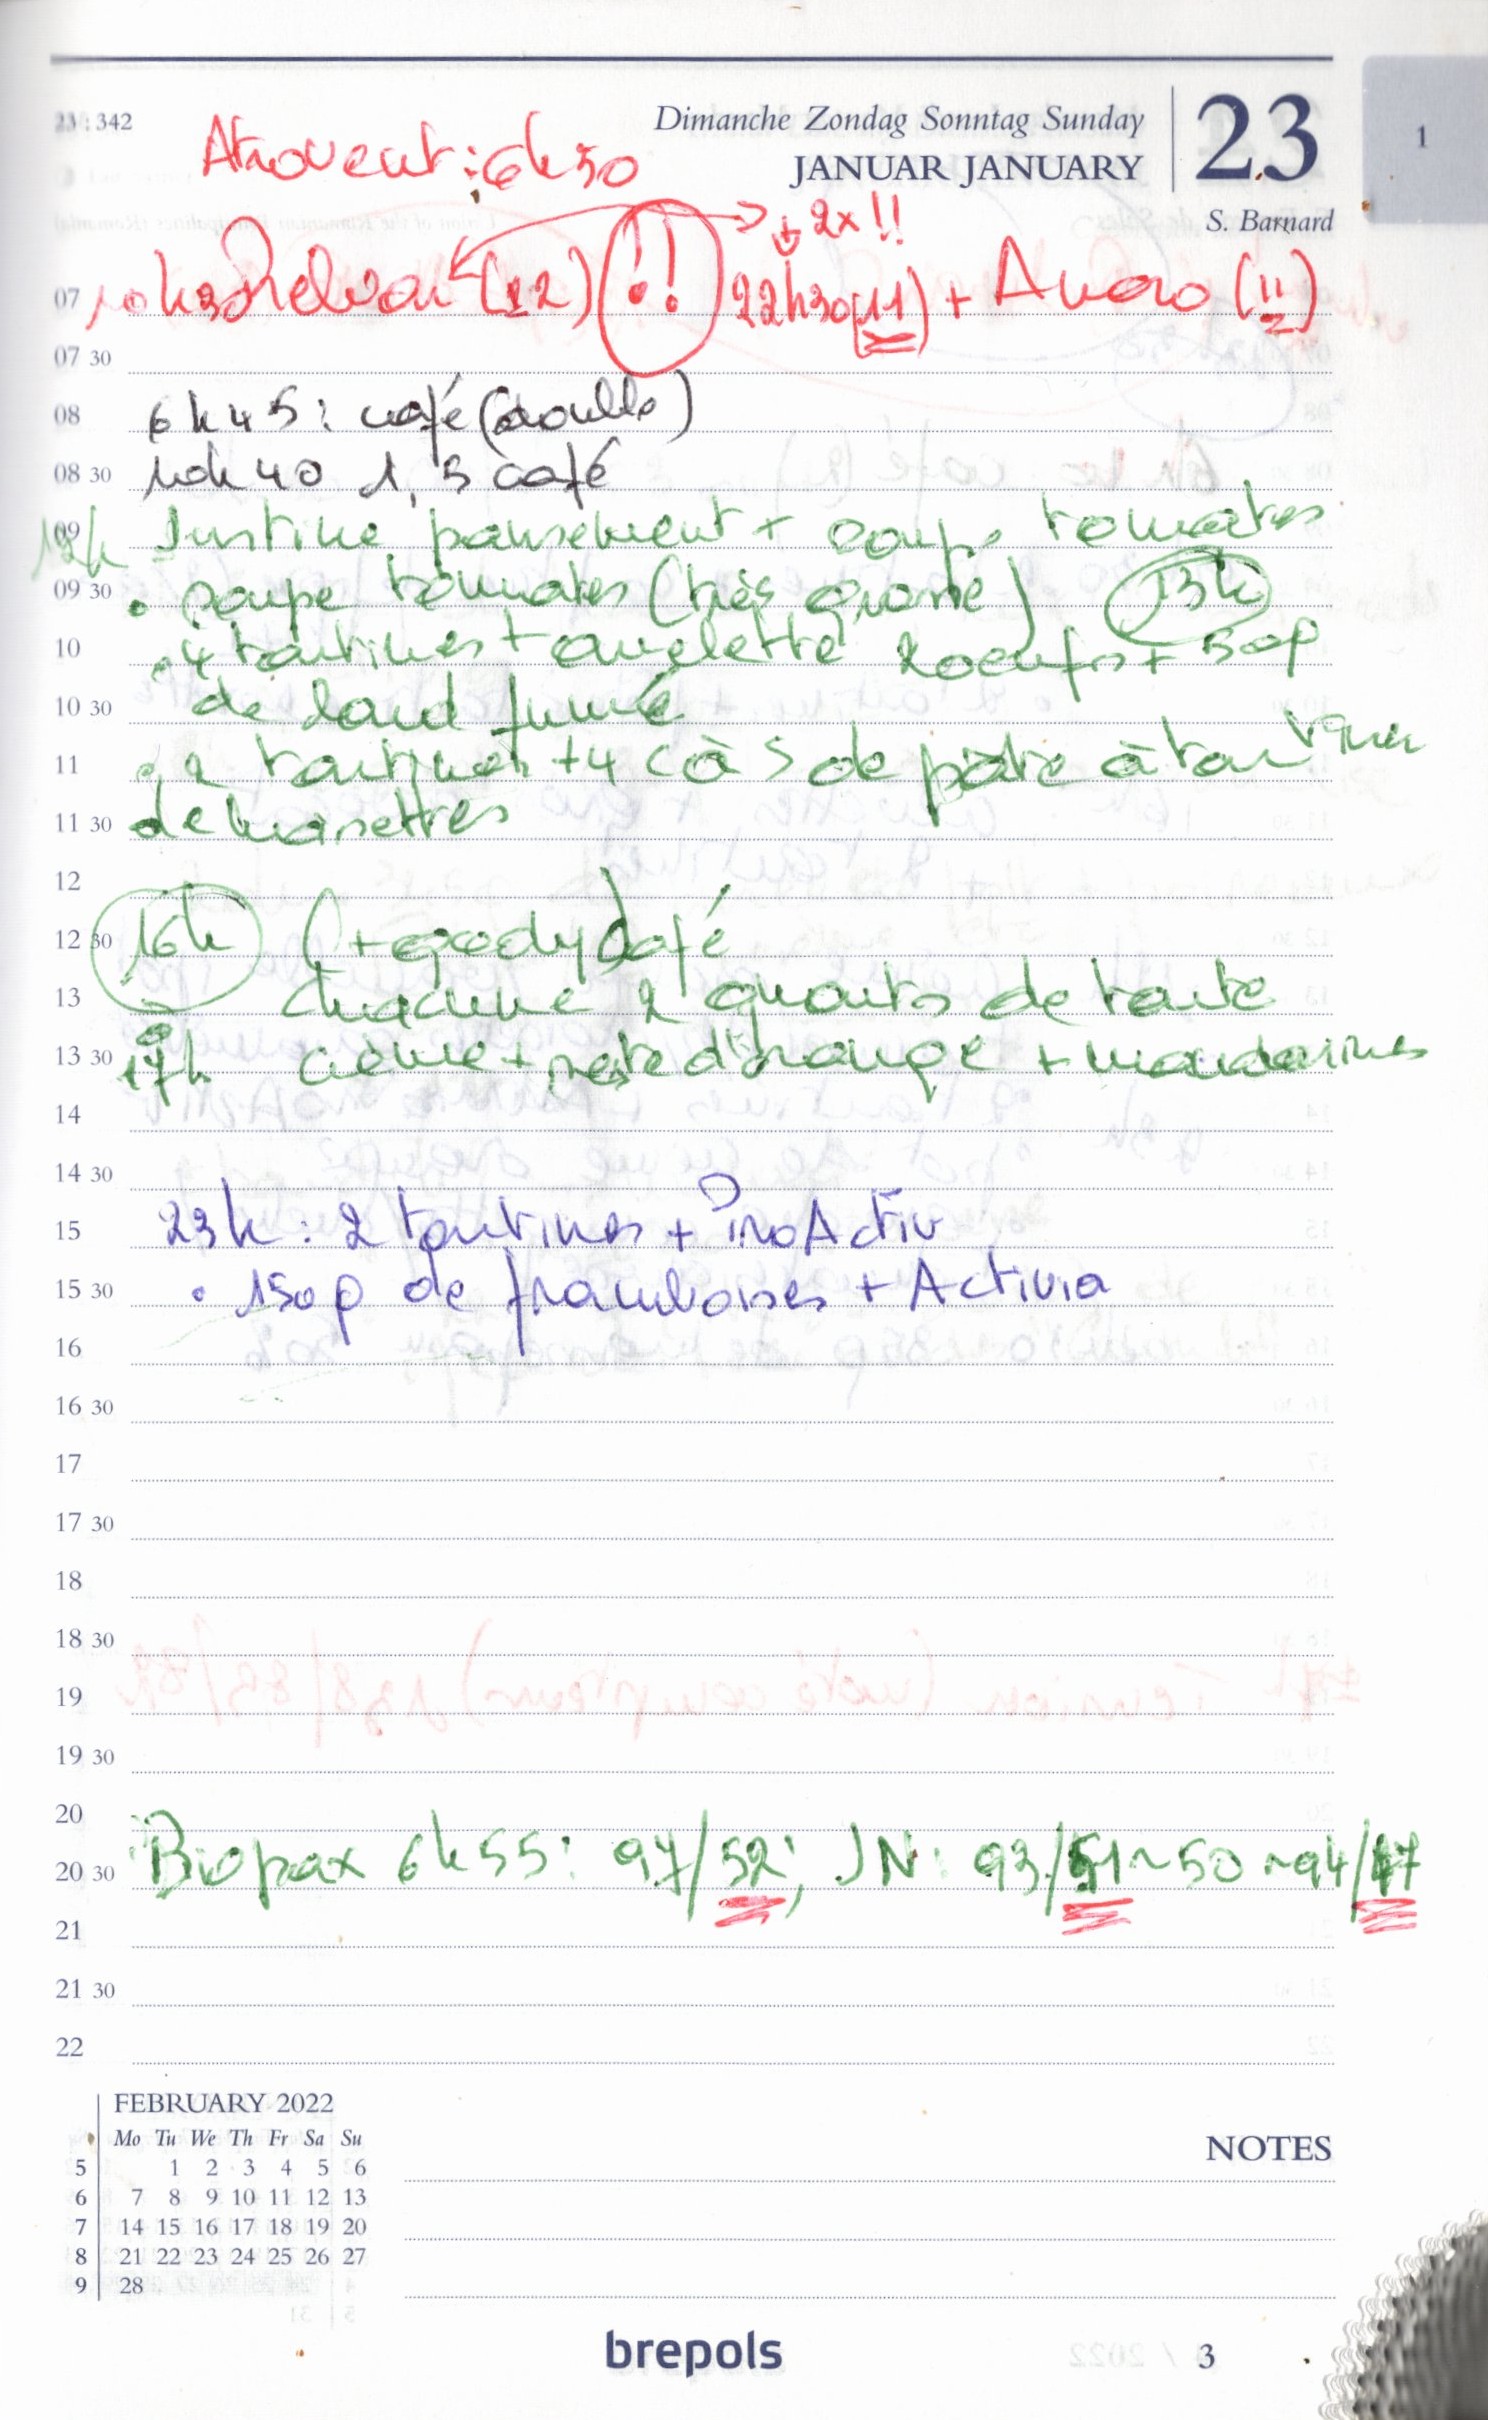 23 : 342
Dimanche Zondag Sonntag Sunday
JANUAR JANUARY
23
1
S. Barnard
Atrovent : 6h50
→ + 2x !!
07 10h30 Relvar (12) !! 22h30 (11) + Anoro (11)
07 30
08 6h45 : café (double)
08 30 10h40 1,5 café
09 12h Justine pansement + soupe tomates
09 30 • soupe tomates (très grosse) 13h
10 • 4 tartines + omelette 2 oeufs + 50g
10 30 de lard fumé
11 • 2 tartines + 4 c à s de pâte à tartiner
11 30 de noisettes
12
12 30 16h (+ ) café
13 chacune 2 quarts de tarte
13 30 17h crème + reste d'orange + mandarines
14
14 30
15 23h : 2 tartines + ProActiv
15 30 • 150g de framboises + Activia
16
16 30
17
17 30
18
18 30
19
19 30
20
20 30 Biopax 6h55 : 97/52 ; JN : 93/51 ~ 50 ~ 94/47
21
21 30
22
FEBRUARY 2022
Mo Tu We Th Fr Sa Su
5 1 2 3 4 5 6
6 7 8 9 10 11 12 13
7 14 15 16 17 18 19 20
8 21 22 23 24 25 26 27
9 28
NOTES
brepols
3